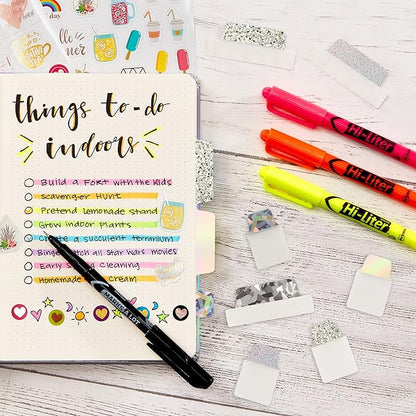 things to-do
indoors
Build a Fort with the Kids
Scavenger Hunt
Pretend lemonade stand
Grow indoor plants
Create a succulent terrarium
Binge watch all Star Wars movies
Early Spring Cleaning
Homemade Ice Cream
MARKS A LOT
Hi-Liter
Hi-Liter
Hi-Liter